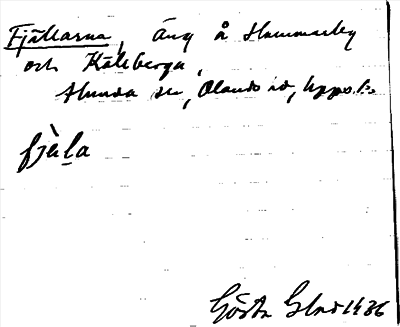 Fjällarna, äng å Hammarby
och Kålsberga,
Stunda sn, Olands hd, Uppl.
fjäla
Gösta 1936